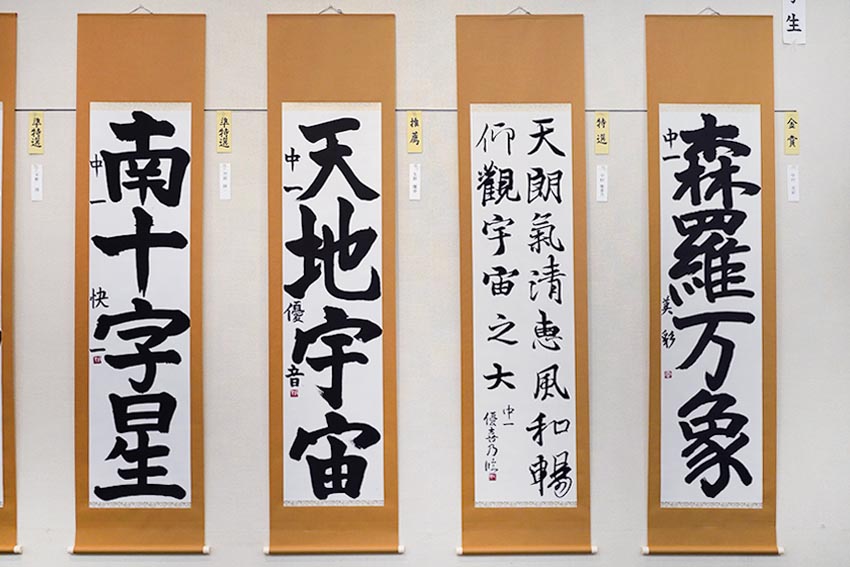 学生
金賞
森羅万象
中一
英彩
特選
天朗氣清惠風和暢
仰觀宇宙之大
中一
優喜乃臨
推薦
天地宇宙
中一
優音
準特選
南十字星
中一
快一
準特選